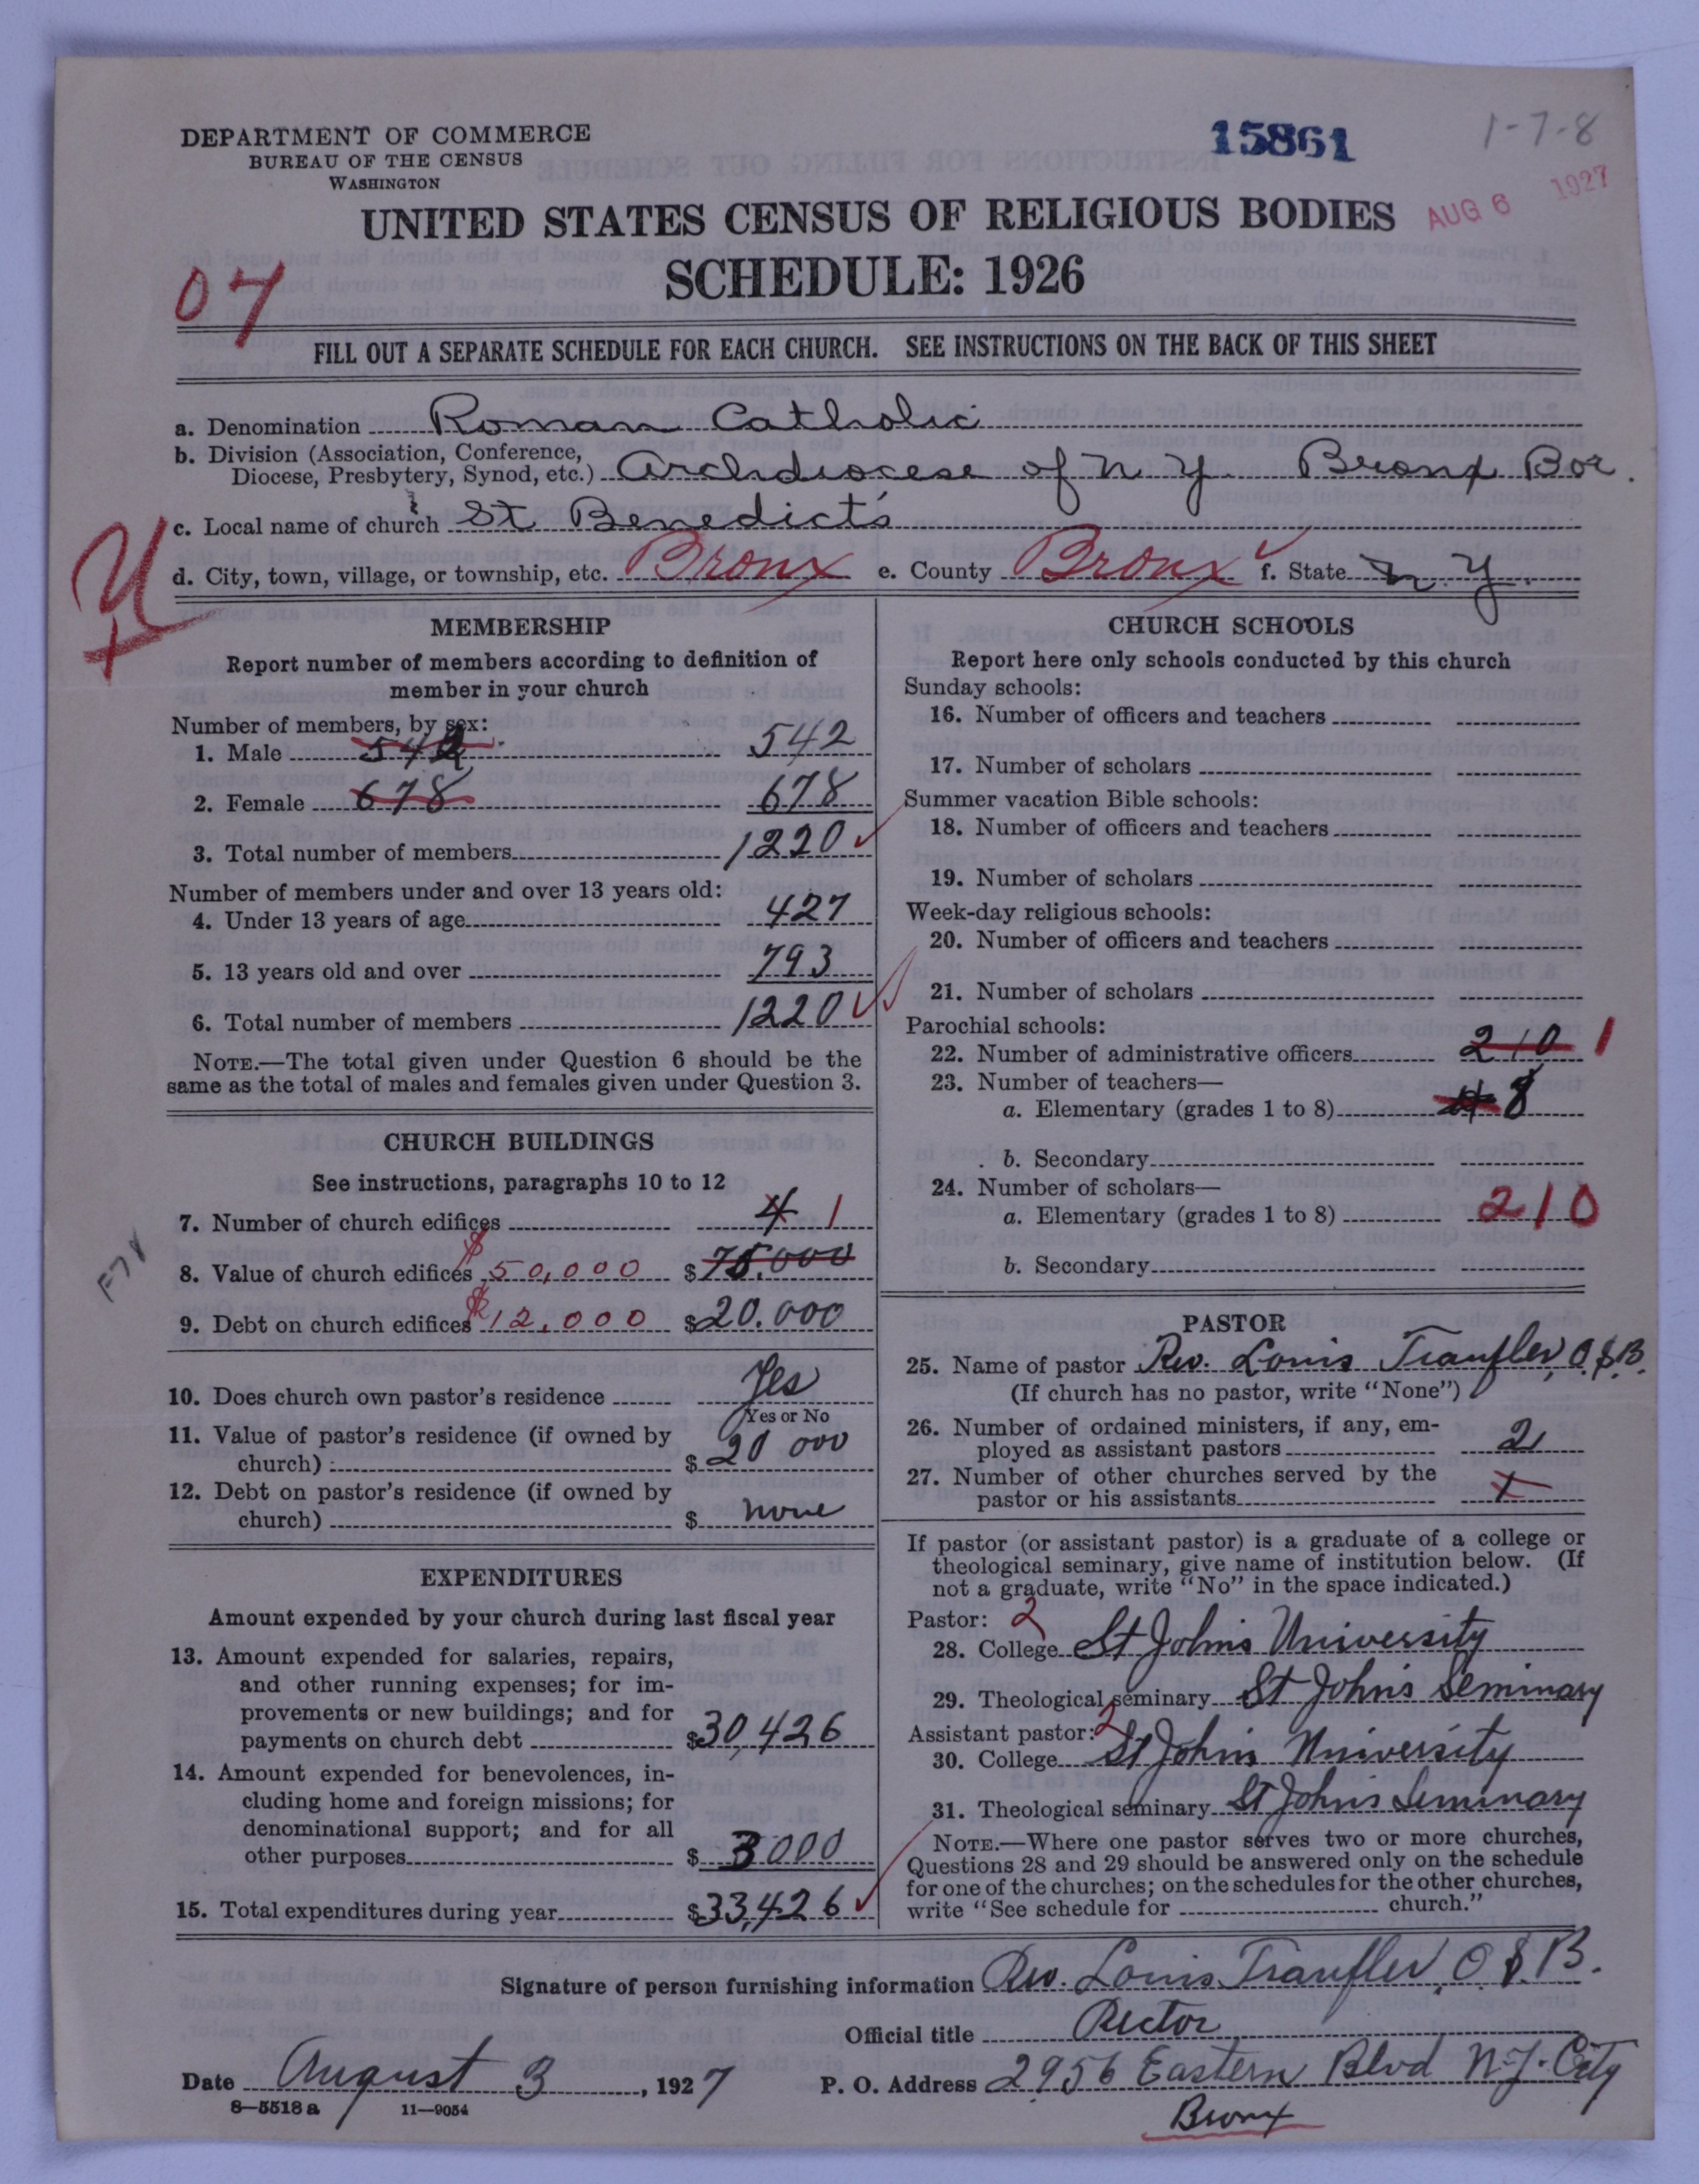 DEPARTMENT OF COMMERCE
BUREAU OF THE CENSUS
WASHINGTON
15861
1-7-8
AUG 6 1927
UNITED STATES CENSUS OF RELIGIOUS BODIES
SCHEDULE: 1926
07
FILL OUT A SEPARATE SCHEDULE FOR EACH CHURCH. SEE INSTRUCTIONS ON THE BACK OF THIS SHEET
a. Denomination Roman Catholic
b. Division (Association, Conference,
Diocese, Presbytery, Synod, etc.) Archdiocese of N Y. Bronx Bor.
c. Local name of church St Benedict's
d. City, town, village, or township, etc. Bronx e. County Bronx f. State N.Y.
MEMBERSHIP
Report number of members according to definition of
member in your church
Number of members, by sex:
1. Male 542 542
2. Female 678 678
3. Total number of members 1220
Number of members under and over 13 years old:
4. Under 13 years of age 427
5. 13 years old and over 793
6. Total number of members 1220
NOTE.—The total given under Question 6 should be the
same as the total of males and females given under Question 3.
CHURCH BUILDINGS
See instructions, paragraphs 10 to 12
7. Number of church edifices 4 1
8. Value of church edifices $50,000 $75.000
9. Debt on church edifices $12,000 $20.000
10. Does church own pastor's residence Yes
Yes or No
11. Value of pastor's residence (if owned by
church) $20 000
12. Debt on pastor's residence (if owned by
church) $ none
EXPENDITURES
Amount expended by your church during last fiscal year
13. Amount expended for salaries, repairs,
and other running expenses; for im-
provements or new buildings; and for
payments on church debt $30,426
14. Amount expended for benevolences, in-
cluding home and foreign missions; for
denominational support; and for all
other purposes $3000
15. Total expenditures during year $33,426
CHURCH SCHOOLS
Report here only schools conducted by this church
Sunday schools:
16. Number of officers and teachers
17. Number of scholars
Summer vacation Bible schools:
18. Number of officers and teachers
19. Number of scholars
Week-day religious schools:
20. Number of officers and teachers
21. Number of scholars
Parochial schools:
22. Number of administrative officers 210 1
23. Number of teachers—
a. Elementary (grades 1 to 8) 8
b. Secondary
24. Number of scholars—
a. Elementary (grades 1 to 8) 210
b. Secondary
PASTOR
25. Name of pastor Rev. Louis Traufler, O.S.B.
(If church has no pastor, write "None")
26. Number of ordained ministers, if any, em-
ployed as assistant pastors 2
27. Number of other churches served by the
pastor or his assistants
If pastor (or assistant pastor) is a graduate of a college or
theological seminary, give name of institution below. (If
not a graduate, write "No" in the space indicated.)
Pastor: 2
28. College St Johns University
29. Theological seminary St Johns Seminary
Assistant pastor: 2
30. College St Johns University
31. Theological seminary St Johns Seminary
NOTE.—Where one pastor serves two or more churches,
Questions 28 and 29 should be answered only on the schedule
for one of the churches; on the schedules for the other churches,
write "See schedule for church."
Signature of person furnishing information Rev. Louis Traufler, O.S.B.
Official title Rector
Date August 3, 1927 P. O. Address 2956 Eastern Blvd N.Y. City
8—5518 a 11—9054
Bronx